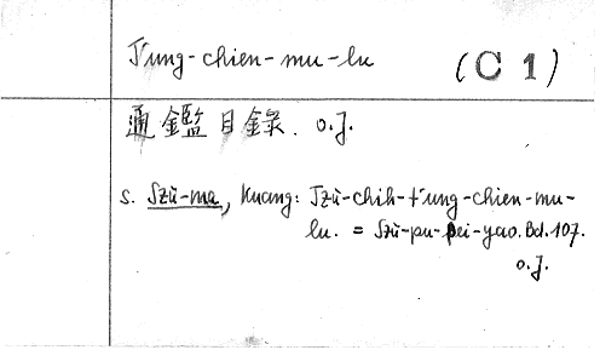 T'ung-chien-mu-lu (C 1)
通鑑目錄. o.J.
s. Szŭ-ma, Kuang: Tzŭ-chih-t'ung-chien-mu-
lu. = Szŭ-pu-pei-yao. Bd. 107.
o.J.